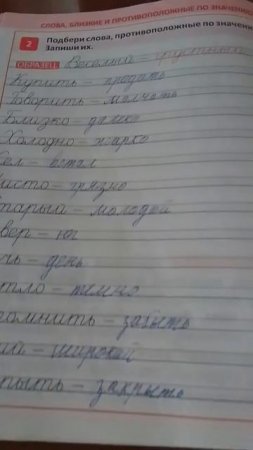 СЛОВА, БЛИЗКИЕ И ПРОТИВОПОЛОЖНЫЕ ПО ЗНАЧЕНИ
2 Подбери слова, противоположные по значени
Запиши их.
ОБРАЗЕЦ Веселый – грустный
Купить – продать
Говорить – молчать
Близко – далеко
Холодно – жарко
сел – встал
исто – грязно
тарый – молодой
вер – юг
чь – день
тло – темно
помнить – забыть
ий – широкий
рыть – закрыть